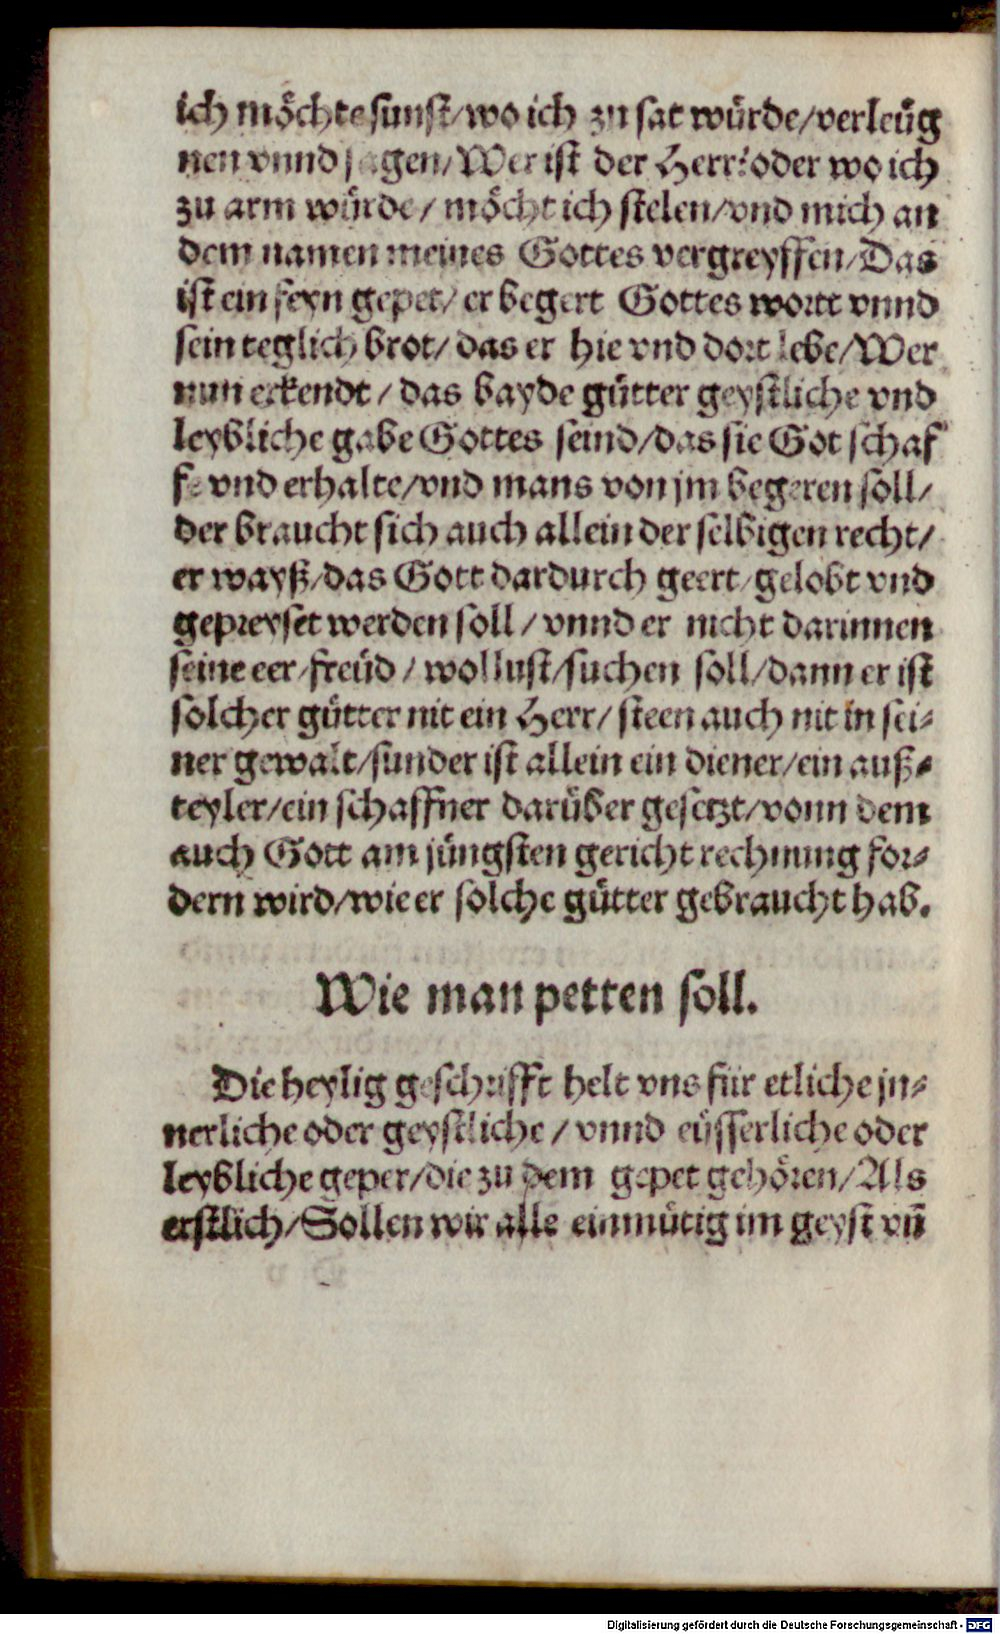 ich möchte sunst/wo ich zu sat würde/verleüg
nen vnnd sagen/Wer ist der Herr? oder wo ich
zu arm würde/ möcht ich stelen/vnd mich an
dem namen meines Gottes vergreyffen/Das
ist ein feyn gepet/ er begert Gottes wortt vnnd
sein teglich brot/ das er hie vnd dort lebe/Wer
nun erkendt/ das bayde gütter geystliche vnd
leybliche gabe Gottes seind/das sie Got schaf
fe vnd erhalte/vnd mans von jm begeren soll/
der braucht sich auch allein der selbigen recht/
er wayß/das Gott dardurch geert/gelobt vnd
gepreyset werden soll/ vnnd er nicht darinnen
seine eer/freüd/ wollust/suchen soll/dann er ist
solcher gütter nit ein Herr/ steen auch nit in sei⸗
ner gewalt/sunder ist allein ein diener/ein auß⸗
teyler/ein schaffner darüber gesetzt/vonn dem
auch Gott am jüngsten gericht rechnung for⸗
dern wird/wie er solche gütter gebraucht hab.
Wie man petten soll.
Die heylig geschrifft helt vns für etliche jn⸗
nerliche oder geystliche/ vnnd eüsserliche oder
leybliche geper/die zu dem gepet gehören/Als
erstlich/Sollen wir alle einmütig im geyst vñ
Digitalisierung gefördert durch die Deutsche Forschungsgemeinschaft - DFG